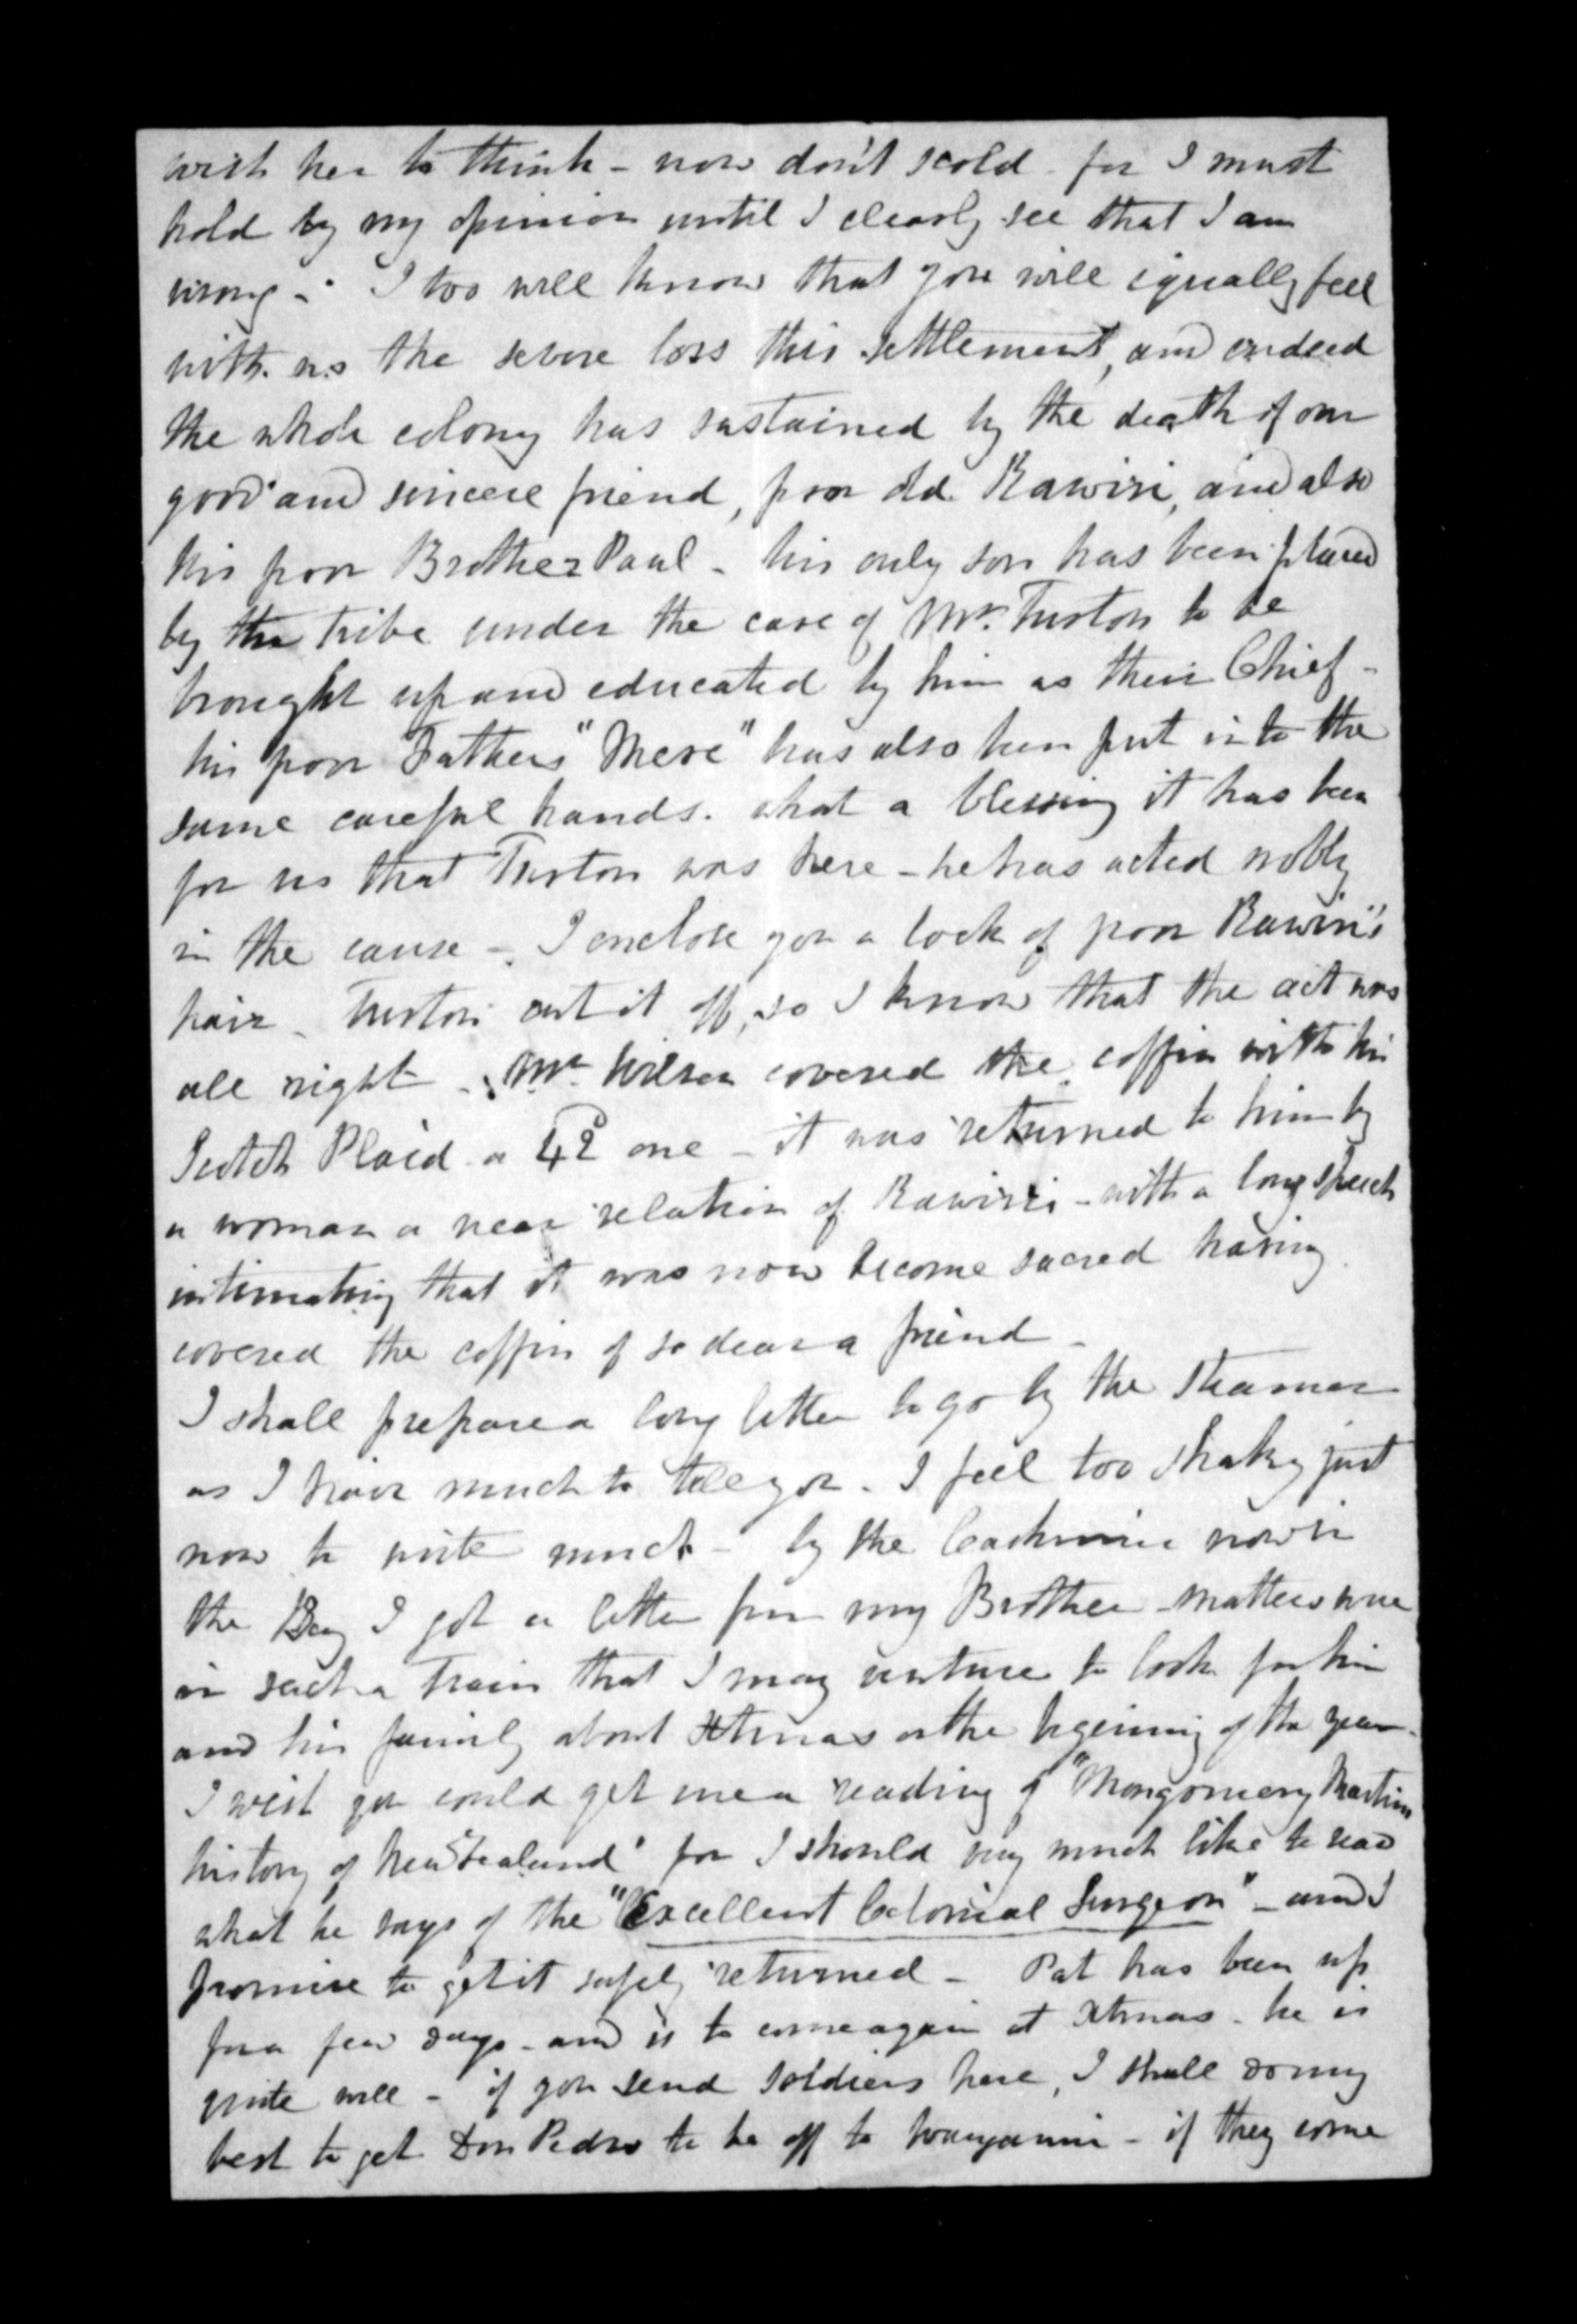 wish her to think - now don't scold - for I must
hold by my opinion until I clearly see that I am
wrong - I too well know that you will equally feel
with us the severe loss this settlement, and indeed
the whole colony has sustained by the death of our
good and sincere friend, poor old Rawiri, and also
his poor Brother Paul - his only son has been placed
by the tribe under the care of Mr. Turton to be
brought up and educated by him as their Chief -
his poor Fathers "Mere" has also been put into the
same careful hands. what a blessing it has been
for us that Turton was here - he has acted nobly
in the cause - I enclose you a lock of poor Rawiri's
hair - Turton cut it off, so I know that the act was
all right - Mr Wilson covered the coffin with his
Scotch Plaid a 42d one - it was returned to him by
a woman a near relation of Rawiri's - with a long speech
intimating that it was now become sacred having
covered the coffin of so dear a friend -
I shall prepare a long letter to go by the Steamer
as I have much to tell you. I feel too shaky just
now to write much - by the Cashmere now in
the Bay I got a letter from my Brother - matters were
in such a train that I may venture to look for him
and his family about Xtmas or the begining of the year.
I wish you could get me a reading of "Mongomery Martins
history of New Zealand" for I should very much like to read
what he says of the "Excellent Colonial Surgeon" - and I
promise to get it safely returned - Pat has been up
for a few days - and is to come again at Xtmas - he is
quite well - if you send soldiers here, I shall do my
best to get Don Pedro to be off to Wanganui - if they come